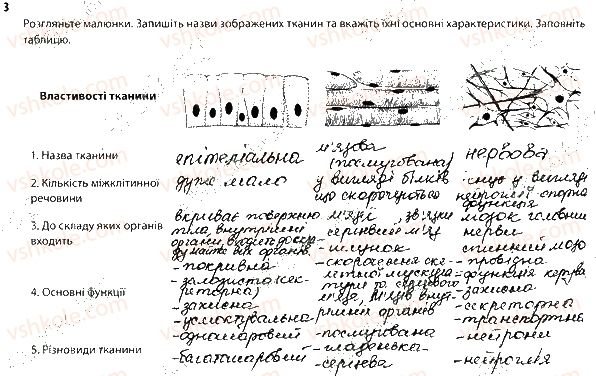 3
Розгляньте малюнки. Запишіть назви зображених тканин та вкажіть їхні основні характеристики. Заповніть
таблицю.
Властивості тканини
1. Назва тканини
епітеліальна
м'язова
(посмугована)
нервова
2. Кількість міжклітинної
речовини
дуже мало
у вигляді білків
що скорочуються
існує у вигляді
нейроглії опорна
функція
3. До складу яких органів
входить
вкриває поверхню
тіла, внутрішні
органи, входить до
усіх органів
м'язи, зв'язки
серцевий м'яз
шлунок
мозок головний
нерви
спинний мозок
4. Основні функції
-покривна
-залозиста (сек-
реторна)
-захисна
-усмоктувальна
-скорочення ске-
летної мускула-
тури та серцевого
м'яза, м'язів внут-
рішніх органів
-провідна
-функція керув.
-захисна
-секреторна
-транспортна
5. Різновиди тканини
-одношаровий
-багатошаровий
-посмугована
-гладенька
-серцева
-нейрони
-нейроглія
vshkole.com